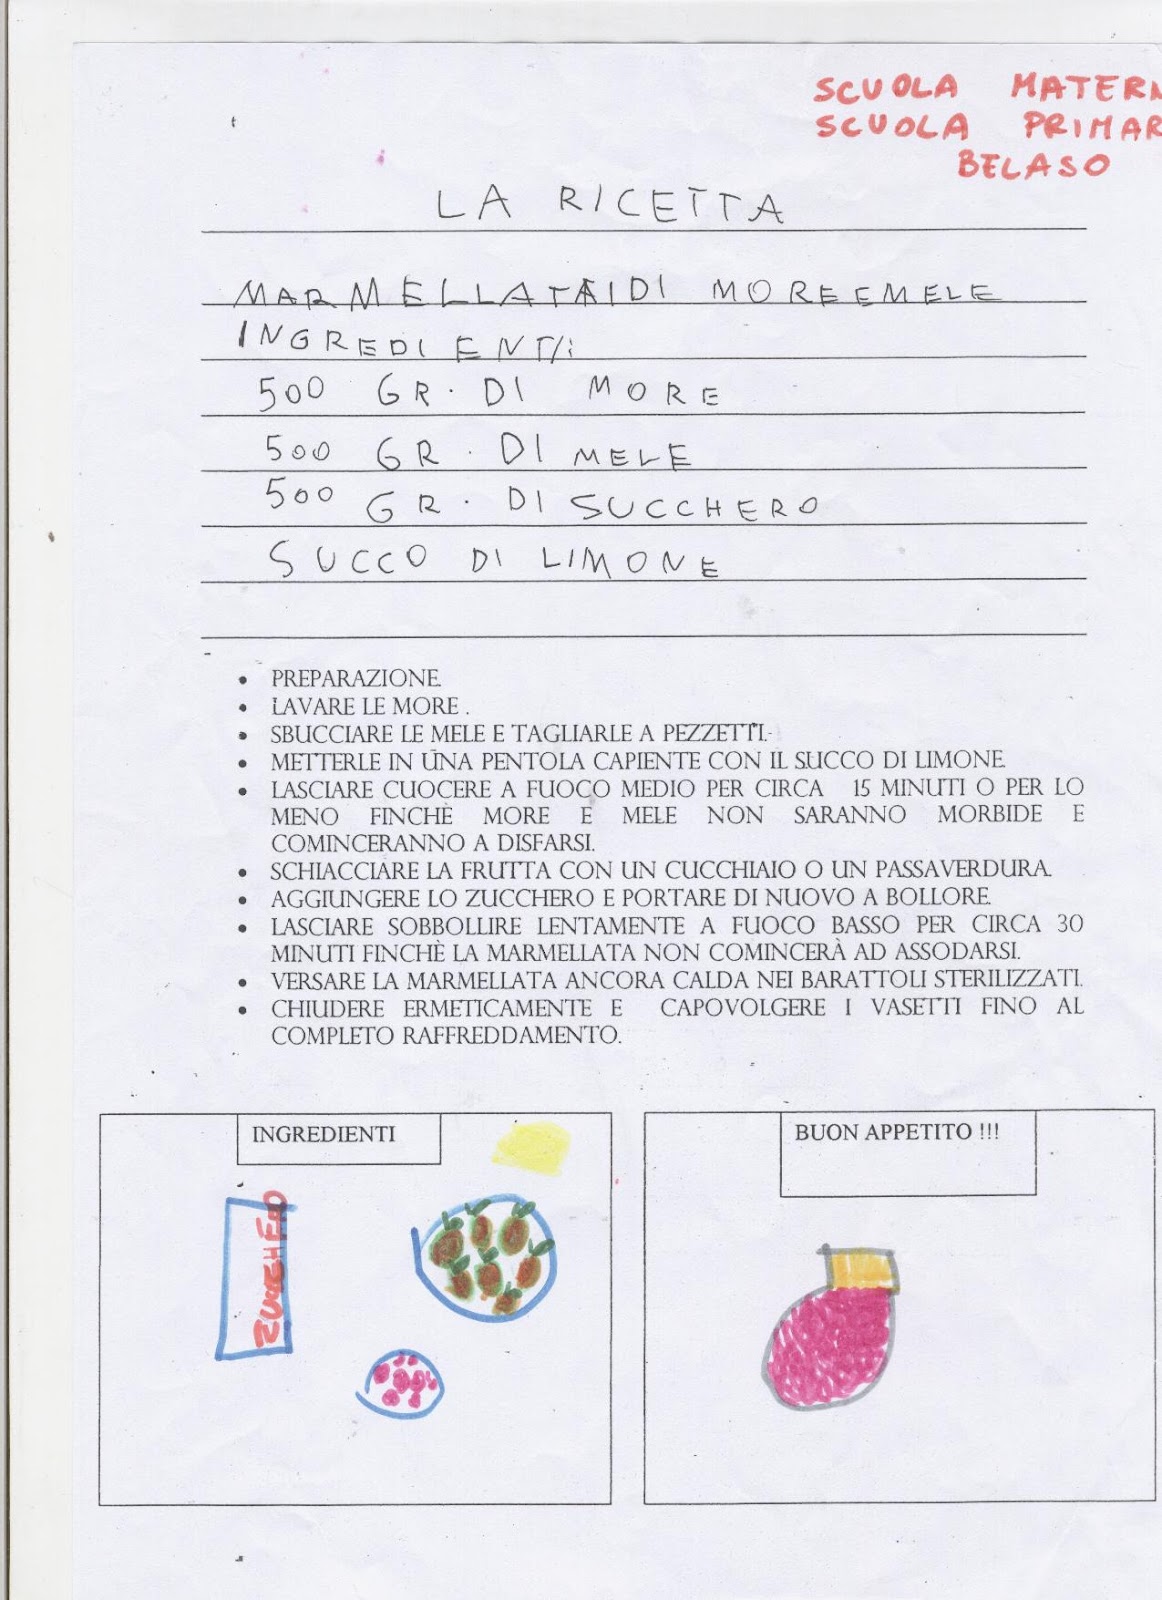 SCUOLA MATERN
SCUOLA PRIMAR
BELASO
LA RICETTA
MARMELLATA DI MORE E MELE
INGREDIENTI:
500 GR. DI MORE
500 GR. DI MELE
500 GR. DI SUCCHERO
SUCCO DI LIMONE
• PREPARAZIONE.
• LAVARE LE MORE .
• SBUCCIARE LE MELE E TAGLIARLE A PEZZETTI.
• METTERLE IN UNA PENTOLA CAPIENTE CON IL SUCCO DI LIMONE
• LASCIARE CUOCERE A FUOCO MEDIO PER CIRCA 15 MINUTI O PER LO
MENO FINCHÈ MORE E MELE NON SARANNO MORBIDE E
COMINCERANNO A DISFARSI.
• SCHIACCIARE LA FRUTTA CON UN CUCCHIAIO O UN PASSAVERDURA.
• AGGIUNGERE LO ZUCCHERO E PORTARE DI NUOVO A BOLLORE.
• LASCIARE SOBBOLLIRE LENTAMENTE A FUOCO BASSO PER CIRCA 30
MINUTI FINCHÈ LA MARMELLATA NON COMINCERÀ AD ASSODARSI.
• VERSARE LA MARMELLATA ANCORA CALDA NEI BARATTOLI STERILIZZATI.
• CHIUDERE ERMETICAMENTE E CAPOVOLGERE I VASETTI FINO AL
COMPLETO RAFFREDDAMENTO.
INGREDIENTI
BUON APPETITO !!!